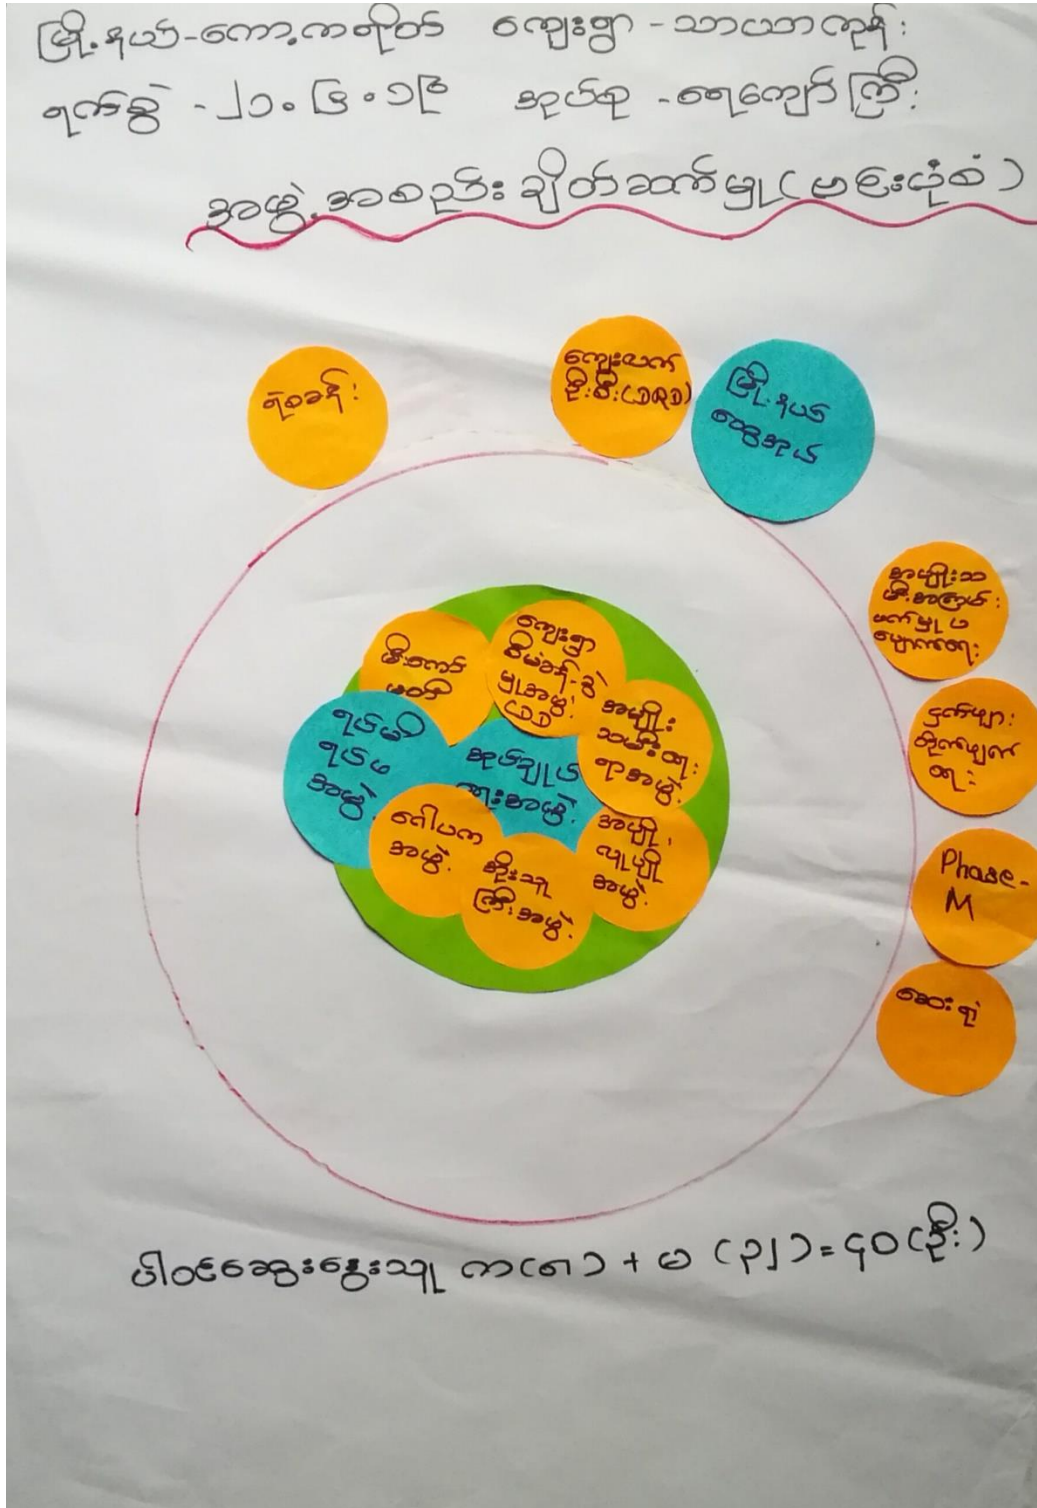 မြို့နယ်-ကော့ကတိုတ် ကျေးရွာ-သာယာကုန်း
ရက်စွဲ - ၂၁.၆.၁၉ အုပ်စု - ရေကျော်ကြီး
အဖွဲ့အစည်းချိတ်ဆက်မှု(ဗင်းပုံစံ)
ရဲစခန်း
ကျေးလက်
ဦးစီး(DRD)
မြို့နယ်
ထွေအုပ်
အမျိုးသ
မီးအကြမ်း
ဖက်မှုပ
ပျောက်ရေး
ငှက်ဖျား
တိုက်ဖျက်
ရေး
Phase-
M
ဆေးရုံ
မီးကော်
မတီ
ကျေးရွာ
စီမံခန့်ခွဲ
မှုအဖွဲ့
CDD
အမျိုး
သမီးရေး
ရာအဖွဲ့
ရပ်မိ
ရပ်ဖ
အဖွဲ့
အုပ်ချုပ်
ရေးအဖွဲ့
ဂေါပက
အဖွဲ့
အိုးသူ
ကြီးအဖွဲ့
အပျို
လူပျို
အဖွဲ့
ပါဝင်ဆွေးနွေးသူ က(၈) + မ (၃၂) = ၄၀(ဦး)